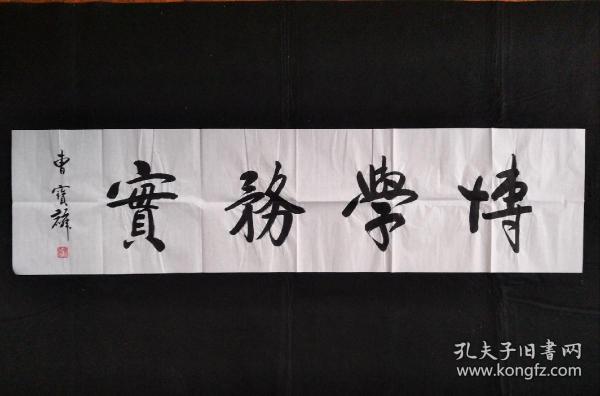 博學務實
曹寶
孔夫子旧書网
www.kongfz.com